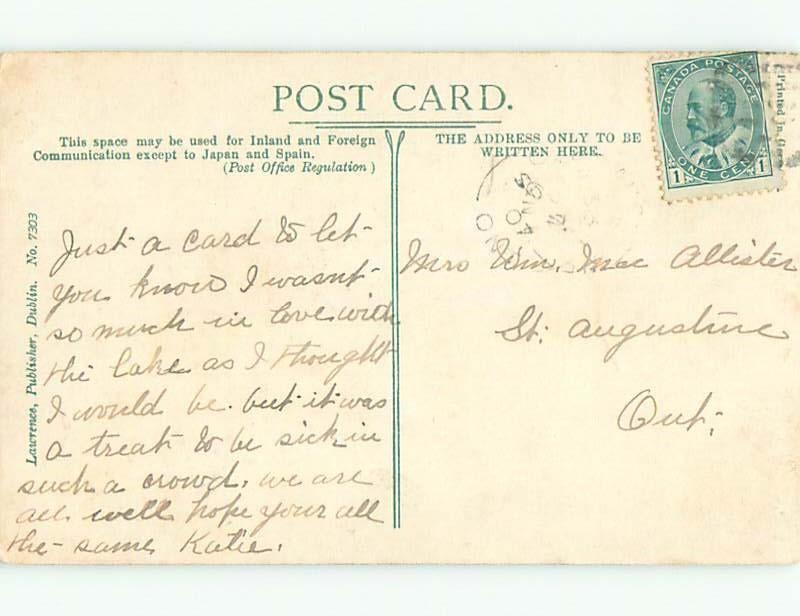 POST CARD.
This space may be used for Inland and Foreign
Communication except to Japan and Spain.
(Post Office Regulation)
THE ADDRESS ONLY TO BE
WRITTEN HERE.
CANADA POSTAGE
1 ONE CENT 1
Printed in
Lawrence, Publisher, Dublin. No. 7303
Just a card to let
you know I wasnt
so much in love with
the lake as I thought
I would be. but it was
a treat to be sick in
such a crowd. we are
all well hope your all
the same Katie.
Mrs Wm. Mac Allister
St. Augustine
Ont.